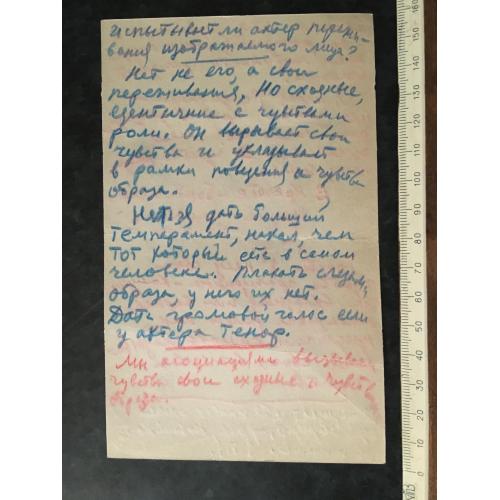 испытывает ли актер пережи-
вания изображаемого лица?
Нет не его, а свои
переживания, но сходные,
едентичные с чувствами
роли. Он вырывает свои
чувства и укладывает
в рамки поведения и чувства
образа.
Нельзя дать больший
темперамент, накал, чем
тот который есть в самом
человеке. Плакать слезами
образа, у него их нет.
Дать громовой голос если
у актера тенор.
Мы ассоциациями вызываем
чувства свои сходные с чувствами
образа.